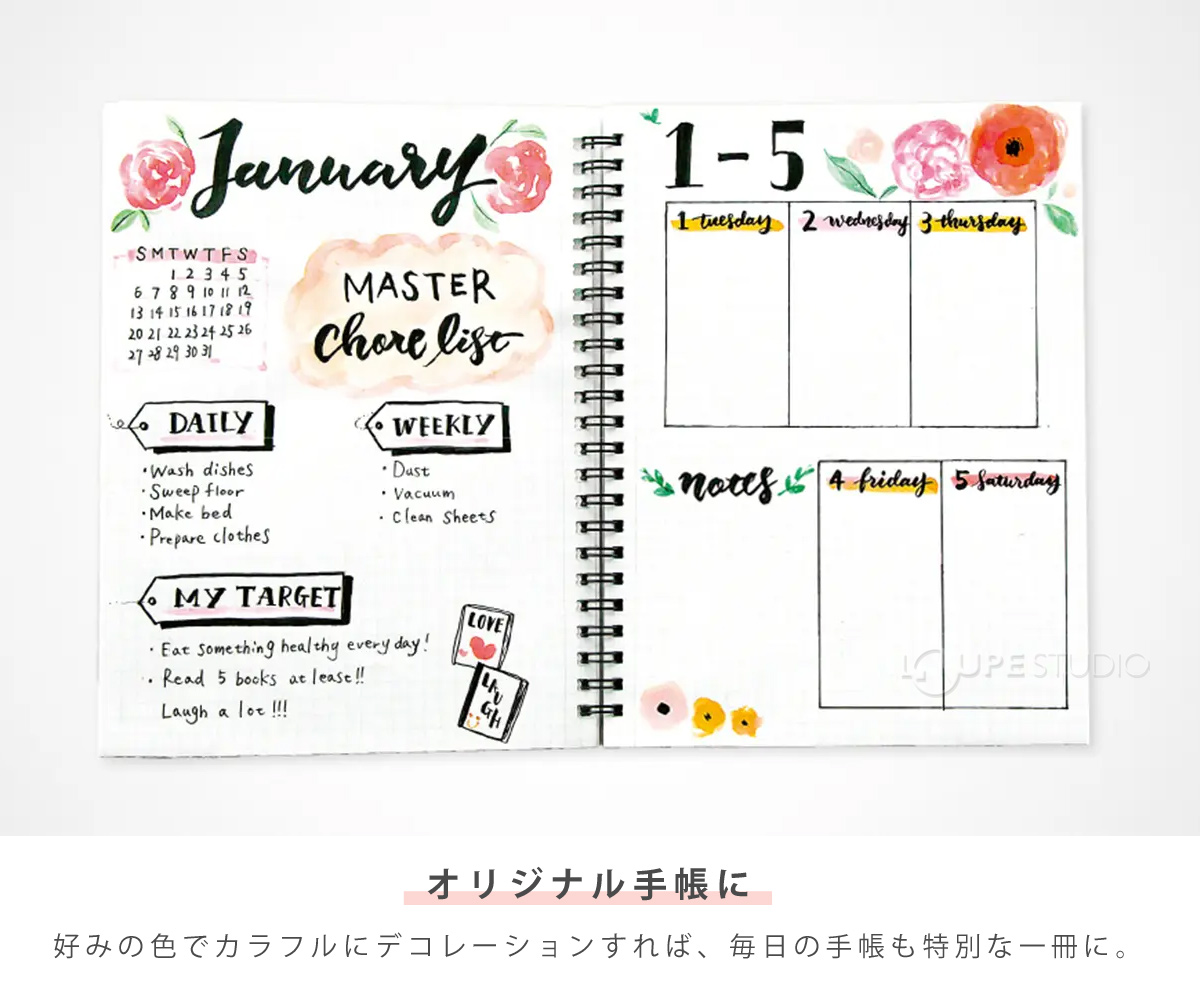 January
S M T W T F S
1 2 3 4 5
6 7 8 9 10 11 12
13 14 15 16 17 18 19
20 21 22 23 24 25 26
27 28 29 30 31
MASTER
Chore list
DAILY
・Wash dishes
・Sweep floor
・Make bed
・Prepare clothes
WEEKLY
・Dust
・Vacuum
・Clean Sheets
MY TARGET
・Eat something healthy every day!
・Read 5 books at least!!
Laugh a lot !!!
LOVE
LAUGH
1-5
1 tuesday
2 wednesday
3 thursday
notes
4 friday
5 saturday
LOUPE STUDIO
オリジナル手帳に
好みの色でカラフルにデコレーションすれば、毎日の手帳も特別な一冊に。